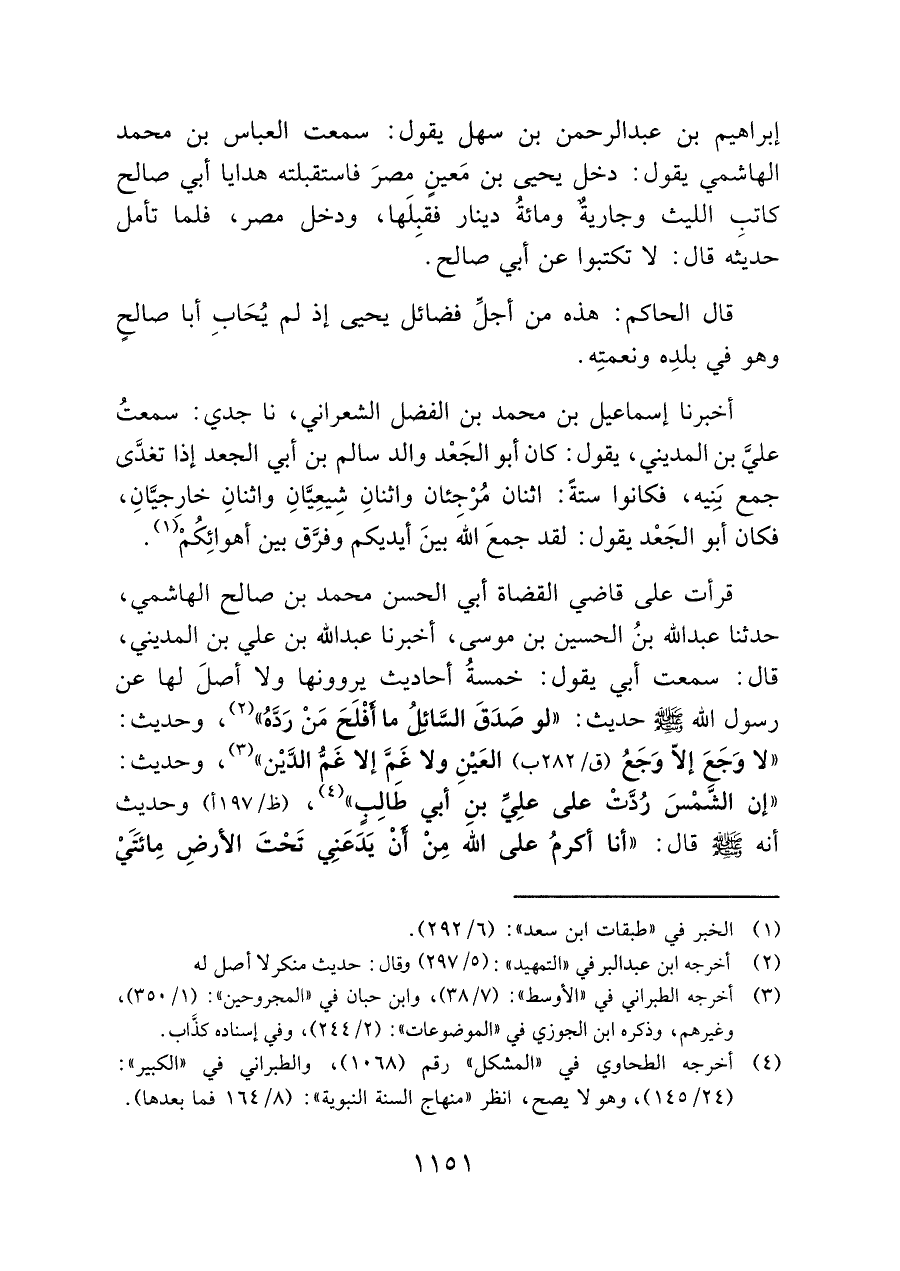 إبراهيم بن عبدالرحمن بن سهل يقول: سمعت العباس بن محمد
الهاشمي يقول: دخل يحيى بن مَعينٍ مصرَ فاستقبلته هدايا أبي صالح
كاتبِ الليث وجاريةٌ ومائةُ دينار فقبِلَها، ودخل مصر، فلما تأمل
حديثه قال: لا تكتبوا عن أبي صالح.
قال الحاكم: هذه من أجلِّ فضائل يحيى إذ لم يُحَابِ أبا صالحٍ
وهو في بلدِه ونعمتِه.
أخبرنا إسماعيل بن محمد بن الفضل الشعراني، نا جدي: سمعتُ
عليَّ بن المديني، يقول: كان أبو الجَعْد والد سالم بن أبي الجعد إذا تغدَّى
جمع بَنِيه، فكانوا ستةً: اثنان مُرْجِئان واثنانِ شِيعِيَّانِ واثنانِ خارِجيَّانِ،
فكان أبو الجَعْد يقول: لقد جمعَ الله بينَ أيديكم وفرَّق بين أهوائِكُمْ(١).
قرأت على قاضي القضاة أبي الحسن محمد بن صالح الهاشمي،
حدثنا عبدالله بنُ الحسين بن موسى، أخبرنا عبدالله بن علي بن المديني،
قال: سمعت أبي يقول: خمسةُ أحاديث يروونها ولا أصلَ لها عن
رسول الله ﷺ حديث: «لو صَدَقَ السَّائِلُ ما أَفْلَحَ مَنْ رَدَّهُ»(٢)، وحديث:
«لا وَجَعَ إلاّ وَجَعُ (ق/٢٨٢ب) العَيْنِ ولا غَمَّ إلا غَمُّ الدَّيْن»(٣)، وحديث:
«إن الشَّمْسَ رُدَّتْ على عليِّ بنِ أبي طَالِبٍ»(٤)، (ظ/١٩٧أ) وحديث
أنه ﷺ قال: «أنا أكرمُ على الله مِنْ أَنْ يَدَعَنِي تَحْتَ الأرضِ مِائتَيْ
(١) الخبر في «طبقات ابن سعد»: (٦/ ٢٩٢).
(٢) أخرجه ابن عبدالبر في «التمهيد»: (٥/ ٢٩٧) وقال: حديث منكر لا أصل له
(٣) أخرجه الطبراني في «الأوسط»: (٧/ ٣٨)، وابن حبان في «المجروحين»: (١/ ٣٥٠)،
وغيرهم، وذكره ابن الجوزي في «الموضوعات»: (٢/ ٢٤٤)، وفي إسناده كذَّاب.
(٤) أخرجه الطحاوي في «المشكل» رقم (١٠٦٨)، والطبراني في «الكبير»:
(٢٤/ ١٤٥)، وهو لا يصح، انظر «منهاج السنة النبوية»: (٨/ ١٦٤ فما بعدها).
١١٥١